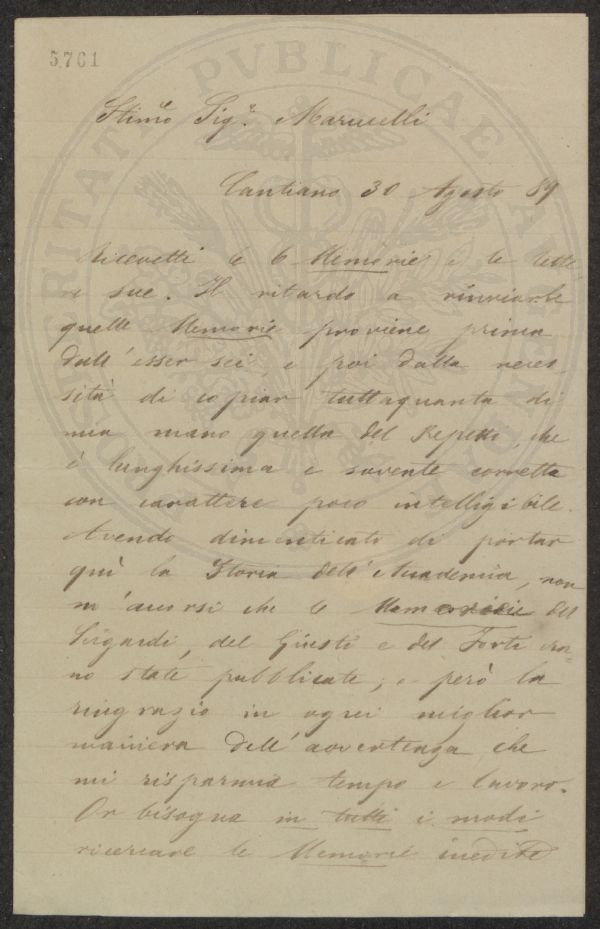 5761
Stimo Sigr. Marucelli
Cantiano 30 Agosto 89
Ricevetti le 6 Memorie e le lette
re sue. Il ritardo a rinviarle
quelle Memorie proviene prima
dall'esser sei, e poi dalla neces
sità di copiar tuttaquanta di
mia mano quella del Repetti, che
è lunghissima e sovente corretta
con carattere poco intelligibile.
Avendo dimenticato di portar
quì la Storia dell'Accademia, non
m'accorsi che le Memorie del
del Giusti e del Forti era=
no state pubblicate; e però la
ringrazio in ogni miglior
maniera dell'avvertenza che
mi risparmia tempo e lavoro.
Or bisogna in tutti i modi
ricercare le Memorie inedite